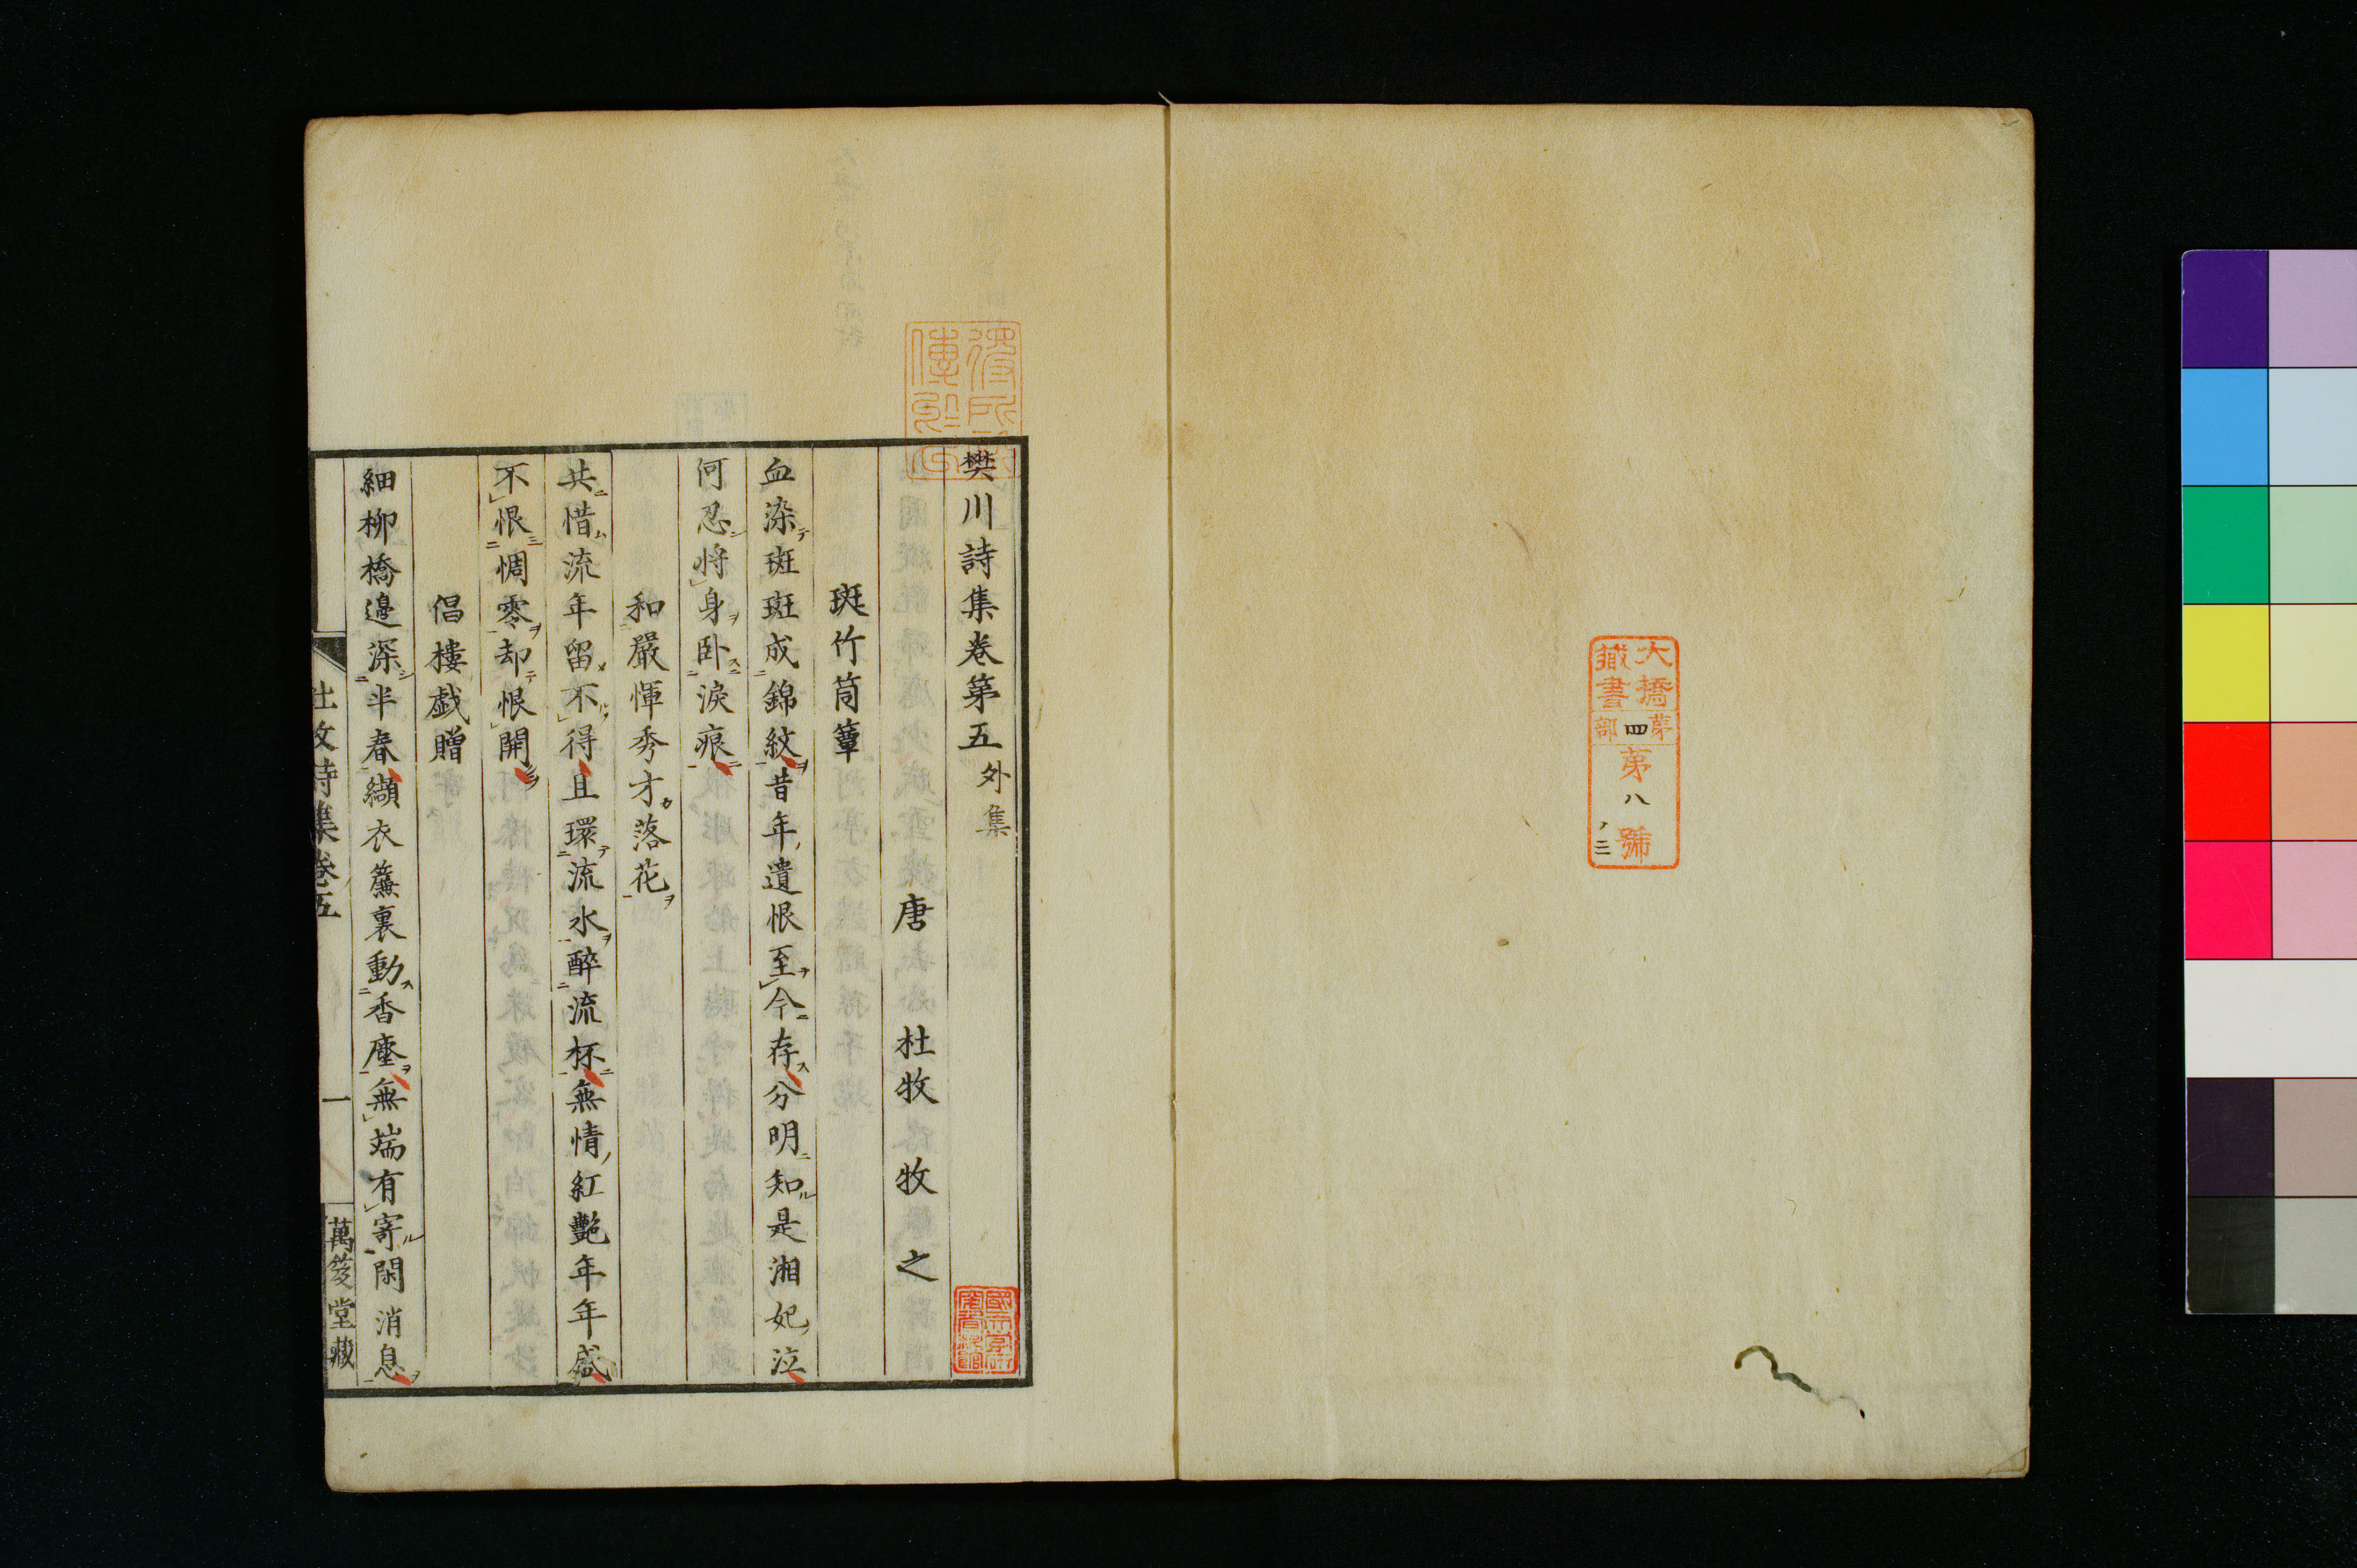 大橋
藏書
第四部
第八號
ノ二
樊川詩集卷第五 外集
唐 杜牧 牧之
斑竹筒簟
血染斑斑成錦紋昔年遺恨至今存分明知是湘妃泣
何忍將身卧淚痕
和嚴惲秀才落花
共惜流年留不得且環流水醉流杯無情紅艷年年盛
不恨惆零却恨開
倡樓戯贈
細柳橋邉深半春纈衣簾裏動香塵無端有寄閑消息
杜牧詩集卷五
一
萬笈堂藏